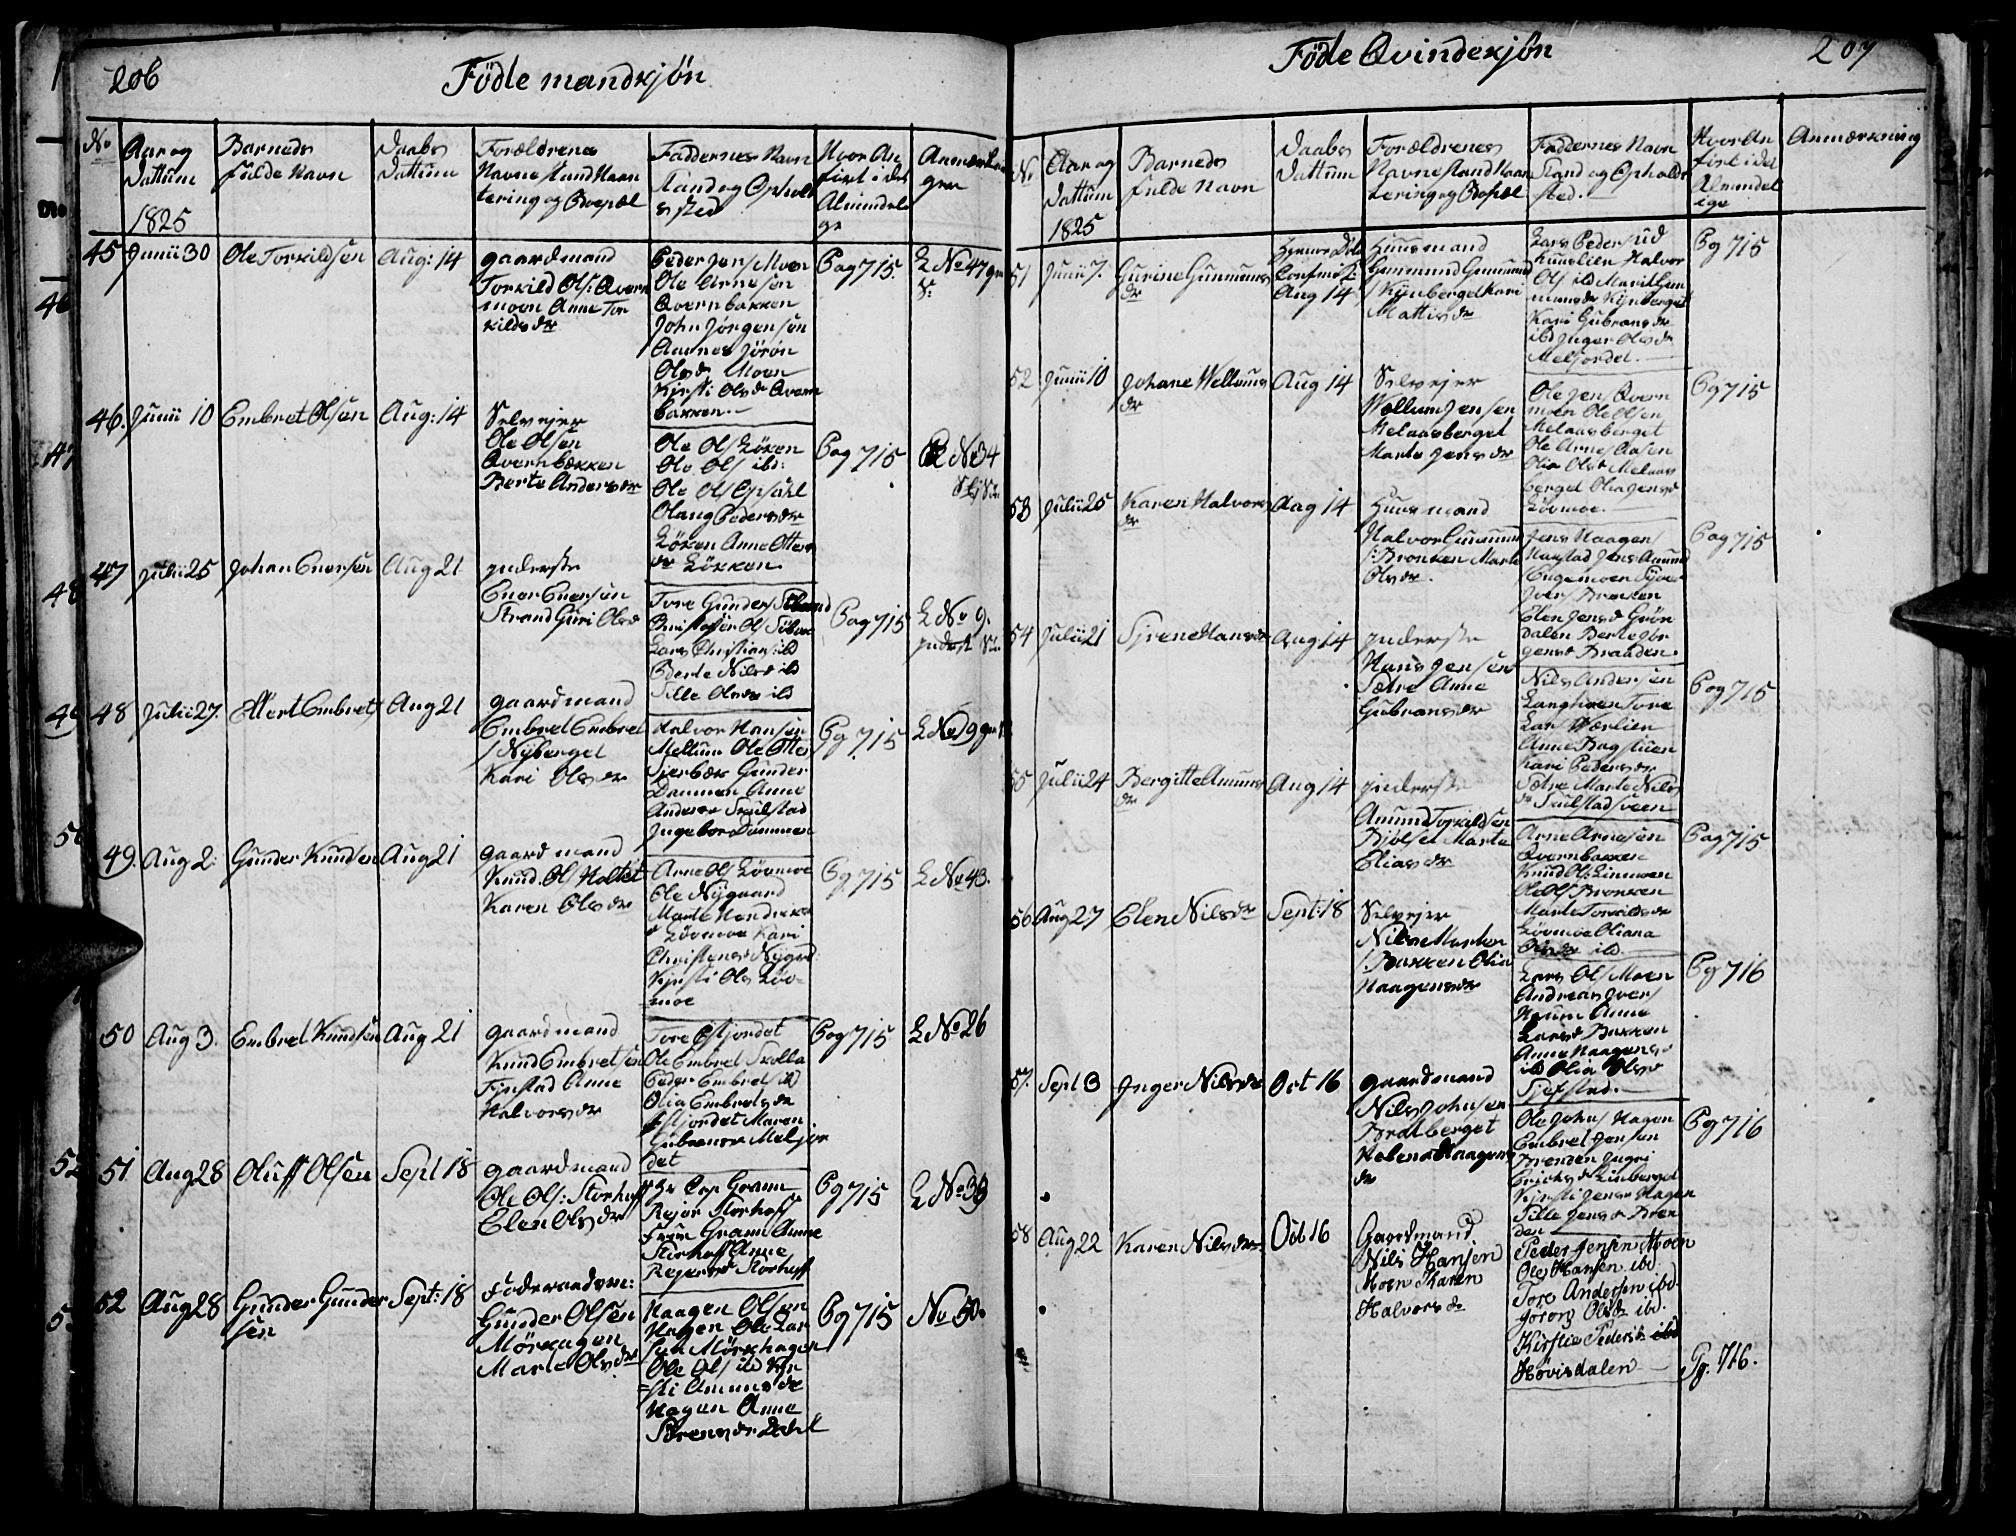 206
Födte mandkjøn
No
Aar og
Dattum
1825
Barnets
fulde Navn
Daabs
Dattum
Forældrenes
Navne stand Haan
tering og Boepæl
Faddernes Navn
Stand og Ophold
ssted
Hvor An
ført i det
Almindel
ge
45
Junii 30
Ole Torkildsen
Aug: 14
gaardmand
Torkild Ols: Qvern
moen Anne Tor
kildsdr
Peder Jens Moen
Ole Arnesen
Qvernbakken
John Jörgensen
Aamnes Jörön
Olsdr Moen
Kjersti Olsdr Qvern
bakken
Pag 715
L No 47
46.
Junii 10
Embret Olsen
Aug: 14
Selvejer
Ole Olsen
Qvernbækken
Berte Andersdr
Ole Ols Löken
Ole Ols ibd:
Ole Ols Opsahl
Olaug Pedersdr
Löken Anne Otters
dr Løkken
Pag 715
No 34
47
Julii 25
Johan Enersen
Aug 21
Inderste
Ener Enersen
Strand Guri Olsd
Tore Gunders Strand
Christopher Ols
Lars Christians ibd
Berte Nilsd ibd
Sille Olsdr ibd
Pag 715
L No 9.
48
Julii 27.
Ellert Embrets
Aug 21
gaardmand
Embret Embret
s Nyberget
Kari Olsdr
Halvor Hansen
Meltum Ole Otters
Gunder
Dammen Anne
Andersd Skulstad
Ingebor Dammen
Pg 715
L No 9
49.
Aug 2.
Gunder Knudsen
Aug 21
gaardmand
Knud Ols Holtet
Karen Olsdr
Arne Ols Lövmoe
Ole Nygaard
Marte Hendriks
d Lövmoe Kari
Christensd Nygrd
Kjersti Ols Löv-
=moe
Pg 715
L No 43.
50
Aug 3.
Embret Knudsen
Aug 21
gaardmand
Knud Embretsen
Tynstad Anne
Halvorsdr
Tore Estjordet
Ole Embret Skolla
Peder Embrets ibd
Olia Embretsdr
Estjordet Maren
Gubransd Meljor
det
Pag 715
L No 26
51
Aug 28
Oluff Olsen
Sept 18
gaardmand
Ole Ols: Storhoff
Elen Olsdr
Hr Cap Gram
Rejer Storhoff
Frue Gram Anne
Storhoff Anne
Rejersd Storhoff
Pg 715
L No 39
52
Aug 28
Gunder Gunder
sen
Sept: 18
Föderaadsm:
Gunder Olsen
Mörkagen
Marte Olsdr
Haagen Olsen
Hagen Ole Lar
sen Mörkhagen
Ole Ols ibd Kjer
=sti Amunsdr
Hagen Anne
Sörensdr Dahl
Pg 715
No 50.
Føde Qvindekjön
207
No
Aar og
Dattum
1825
Barnets
fulde Navn
Daabs
Dattum
Forældrenes
Navne stand Haan
tering og Bopæl
Faddernes Navn
Stand og Opholds
sted.
Hvor An
ført i det
Almindel
ige
Anmærkning
51
Junii 7.
Gurine Gunmunds
dr
Aug 14
Huusmand
Gunmund Gunmund
s Kynberget Kari
Mattisdr
Lars Peders ud
Kuuslien Halvor
Ols ibd Marit Gun
munsdr Kynberget
Kari Gubransdr
ibd Inger Olsdr
Meljordet.
Pg 715
52
Junii 10
Johane Wellums
dr
Aug 14
Selvejer
Wællum Jensen
Melaasberget
Marte Jensdr
Ole Jens Qvern
moen Ole Olsen
Melaasberget
Ole Arnes Aasen
Olia Olsd Melaas
berget Olia Jensd
Lövmoe.
Pg 715
53
Julii 25
Karen Halvors
dr
Aug 14
Huusmand
Halvor Gunmund
s: Bronken Marte
Olsdr.
Jens Haagens
Harstad Jens Amund
Engemoen
Ivers Bronken
Elen Jensd Grön
dalen Berte Jör
gensd Braaden.
Pag 715
54
Julii 21
Sirene Hansdr
Aug 14
Inderste
Hans Jensen
Sætre Anne
Gubransdr
Nils Andersen
Langhoen Tore
Lars Wærlien
Anne Bagstuen
Kari Pedersdr
Sætre Marte Nils
dr Skulstadsveen
Pag 715
55
Julii 24
Bergitte Amunds
dr
Aug 14
Inderste
Amund Torkildsen
Bjölset Marte
Eliasdr
Arne Arnesen
Qvernbakken
Knud Ols: Linmoen
Ole Ols Bronken
Marte Torkildsdr
Lövmoe Oliana
Olsdr ibd.
Pag 715
56
Aug 27
Elen Nilsdr
Sept: 18
Selvejer
Nils Marten
s: Bakken Olia
Haagensdr
Lars Ols Moen
Andreas Ivers
Horum Anne
Larsd Bakken
Anne Haagensd
ibd Olia Olsd
Sjefstad.
Pg 716
57.
Sept 3
Inger Nilsdr
Oct 16
gaardmand
Nils Johnsen
Bratberget
Helena Haagens
dr
Ole Johns Hagen
Embret Jensen
Brenden Ingri
Ericksd Linberget
Kjersti Jensd Hagen
Sille Jensd Bren
den
Pg 716
58
Aug 22
Karen Nilsdr
Octb 16
Gaardmand
Nils Hansen
Moen Karen
Halvorsdr
Peder Jensen Moen
Ole Hansen ibd.
Tore Andersen ibd.
Joron Olsdr ibd.
Kirstie Pedersdr ibd
Hovisdalen
Pg. 716.